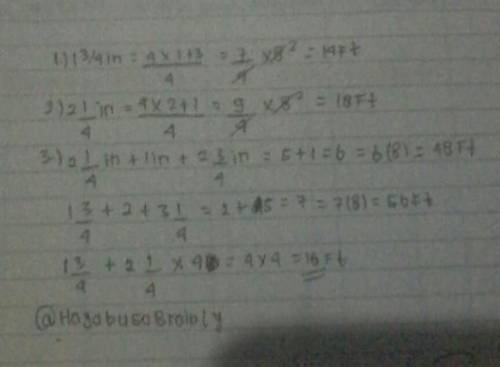 1) 1 3/4 in = 4 x 1 + 3 / 4 = 7 / 4 x 8 ² = 14 Ft
2) 2 1/4 in = 4 x 2 + 1 / 4 = 9 / 4 x 8 ² = 18 Ft
3) 2 1/4 in + 1 in + 2 3/4 in = 5 + 1 = 6 = 6(8) = 48 Ft
1 3/4 + 2 + 3 1/4 = 2 + 5 = 7 = 7(8) = 56 Ft
1 3/4 + 2 1/4 x 4 = 4 x 4 = 16 Ft
@HogabusaBrainly